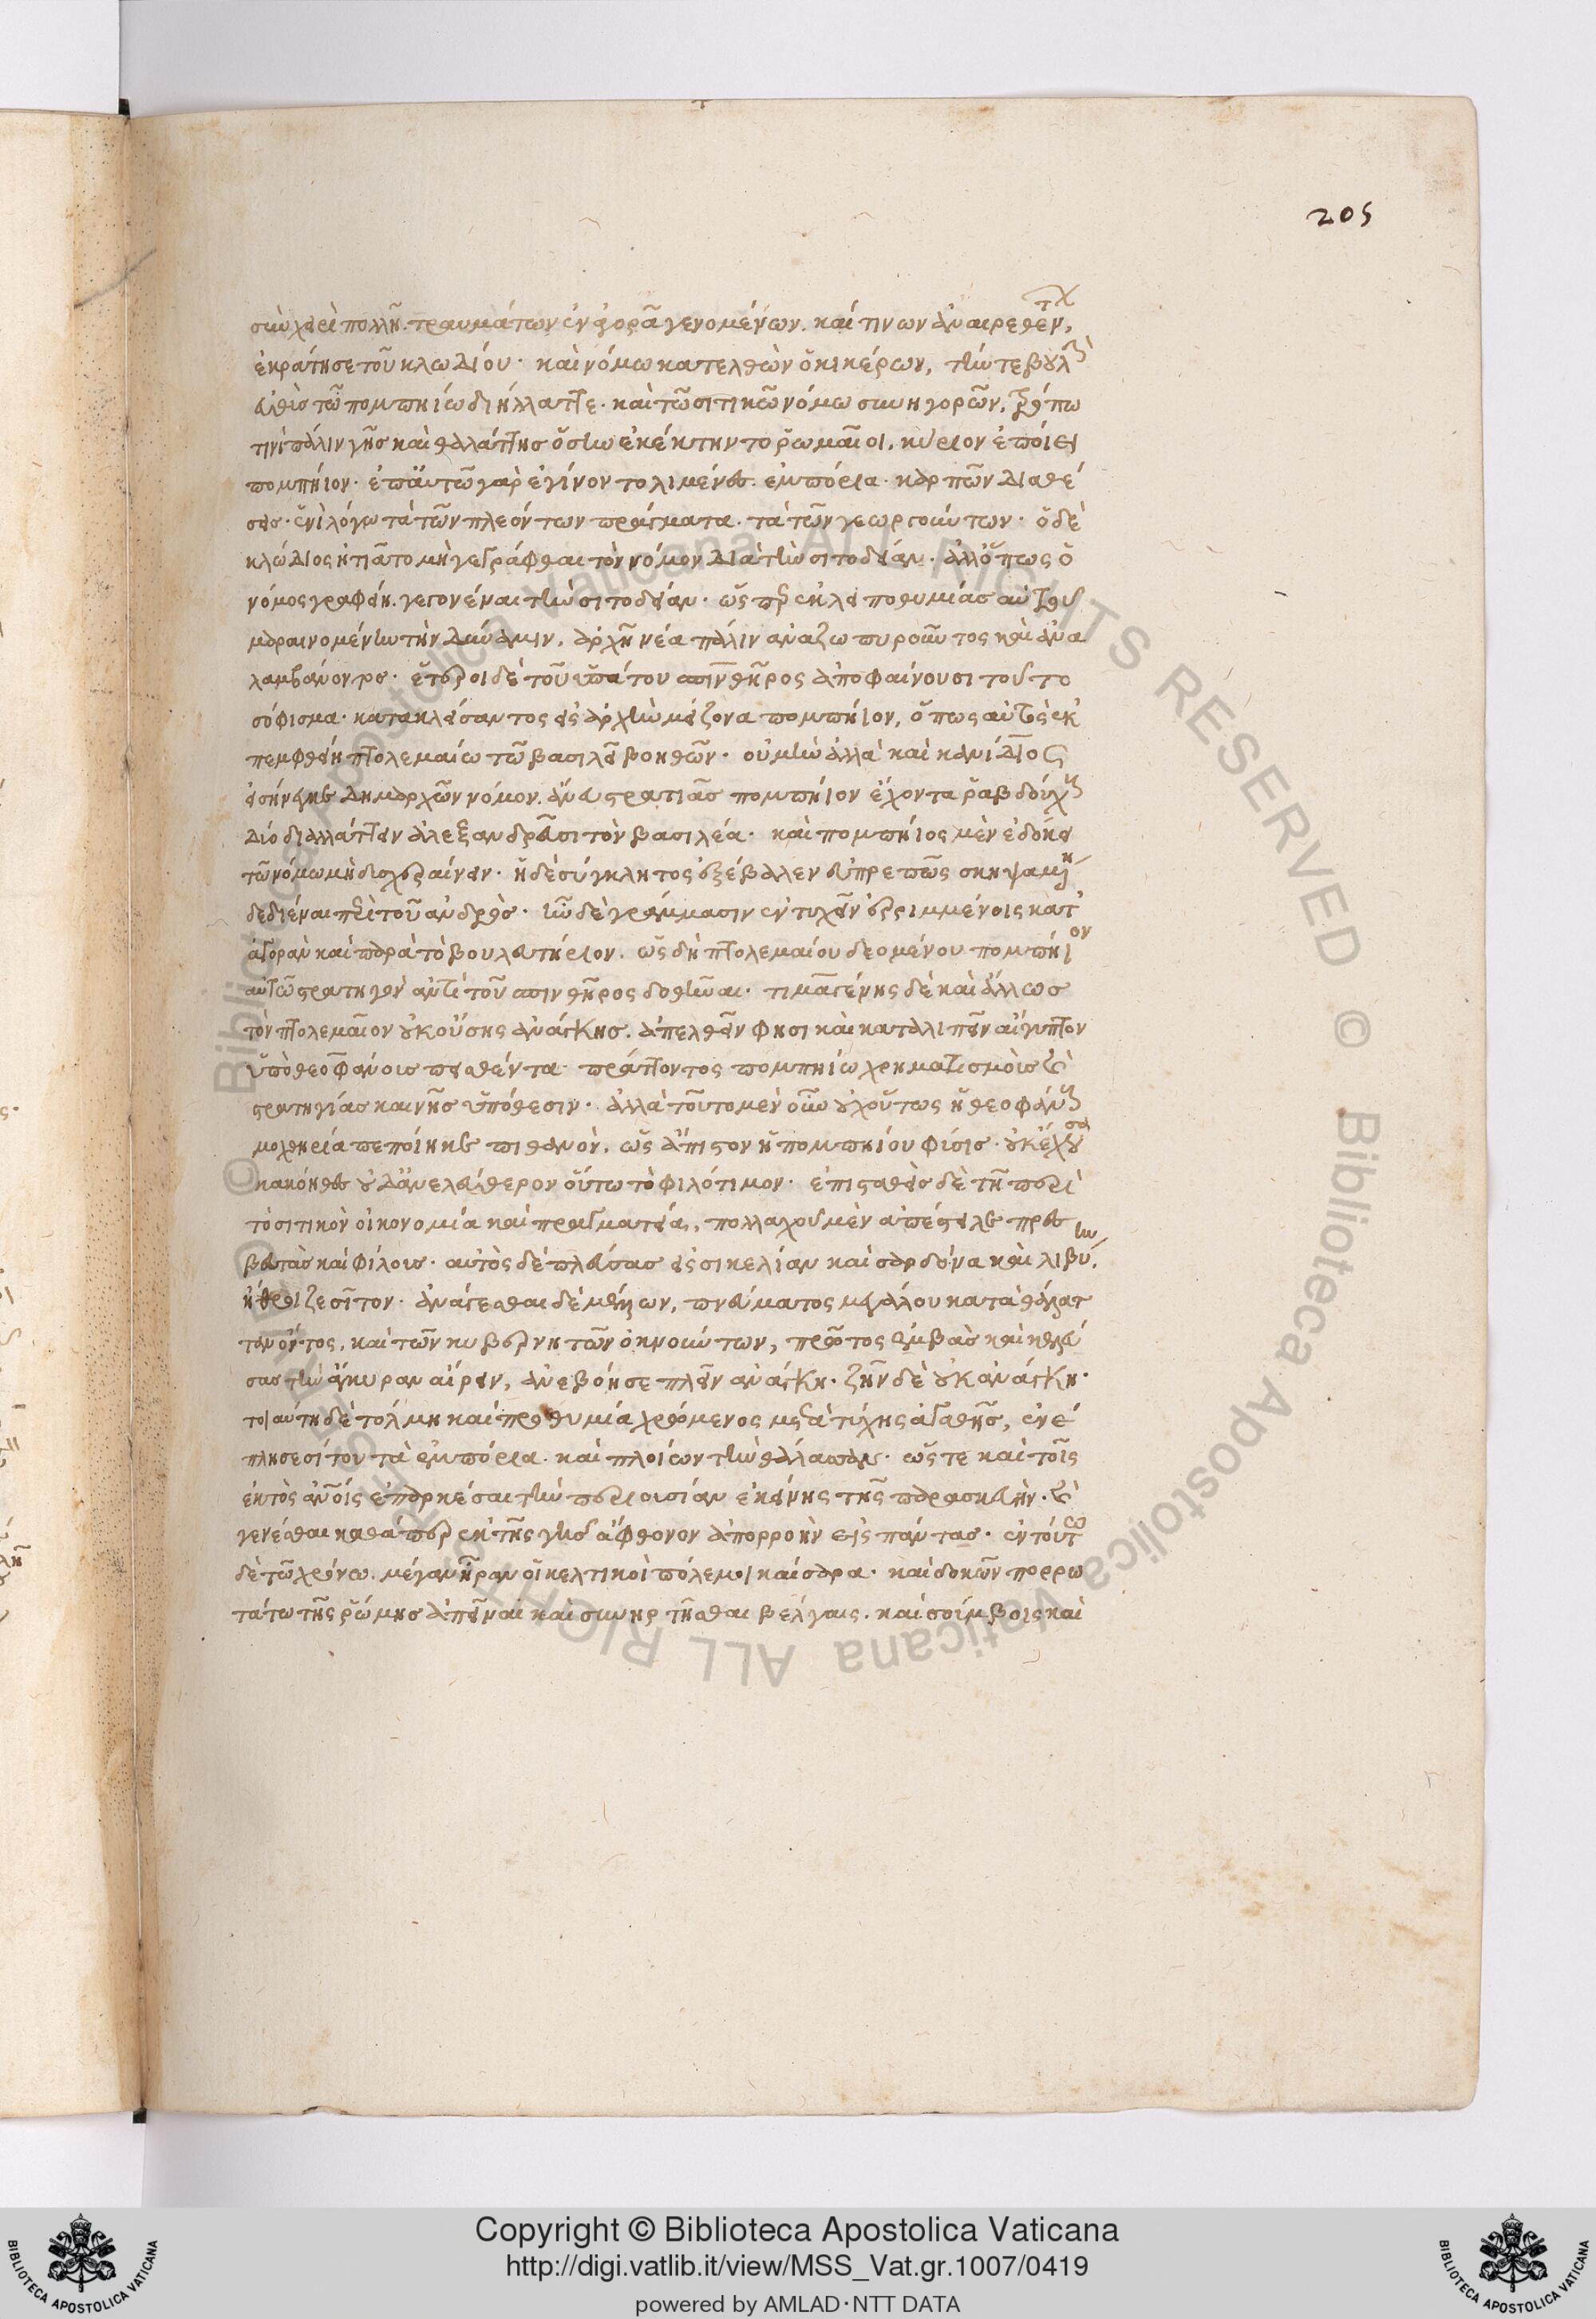 205
σὺν χειρὶ πολλῆ. τραυμάτων ἐν ἀγορᾶ γενομένων. καί τινων ἀναιρεθέντων,
ἐκράτησε τοῦ κλωδίου. καὶ νόμω κατελθὼν ὁ κικέρων, τήν τε βουλὴν
εὐθὺς τῶ πομπηίω διήλλαττε. καὶ τῶ σιτικῶ νόμω συνηγορῶν, τρόπω
τινὶ πάλιν γῆς καὶ θαλάττης ὅσην ἐκέκτηντο ῥωμαῖοι, κύριον ἐποίει
πομπήιον. ἐπ' αὐτῶ γὰρ ἐγίνοντο λιμένες. ἐμπόρια. καρπῶν διαθέ
σεις. ἑνὶ λόγω τὰ τῶν πλεόντων πράγματα. τὰ τῶν γεωργούντων. ὁ δὲ
κλώδιος ἠτιᾶτο μὴ γεγράφθαι τὸν νόμον διὰ τὴν σιτοδείαν. ἀλλ' ὅπως ὁ
νόμος γραφείη. γεγονέναι τὴν σιτοδείαν. ὥσπερ ἐκ λιποθυμίας αὐτοῦ
μαραινομένην τὴν δύναμιν. ἀρχῆ νέα πάλιν ἀναζωπυροῦντος καὶ ἀνα
λαμβάνοντος. ἕτεροι δὲ τοῦ ὑπάτου σπινθῆρος ἀποφαίνουσι τοῦτο
σόφισμα. κατακλείσαντος εἰς ἀρχὴν μείζονα πομπήιον, ὅπως αὐτὸς ἐκ
πεμφθείη πτολεμαίω τῶ βασιλεῖ βοηθῶν. οὐ μὴν ἀλλὰ καὶ κανίδιος
εἰσήνεγκε δημαρχῶν νόμον. ἄνευ στρατιᾶς πομπήιον ἔχοντα ῥαβδούχους
δύο διαλλάττειν ἀλεξανδρεῦσι τὸν βασιλέα. καὶ πομπήιος μὲν ἐδόκει
τῶ νόμω μὴ δυσχεραίνειν. ἡ δὲ σύγκλητος ἐξέβαλεν εὐπρεπῶς σκηψαμένη
δεδιέναι περὶ τοῦ ἀνδρός. ἦν δὲ γράμμασιν ἐντυχεῖν ἐρριμμένοις κατ'
ἀγορὰν καὶ παρὰ τὸ βουλευτήριον. ὡς δὴ πτολεμαίου δεομένου πομπήιον
αὐτῶ στρατηγὸν ἀντὶ τοῦ σπινθῆρος δοθῆναι. τιμαγένης δὲ καὶ ἄλλως
τὸν πτολεμαῖον οὐκ οὔσης ἀνάγκης. ἀπελθεῖν φησι καὶ καταλιπεῖν αἴγυπτον
ὑπὸ θεοφάνους πεισθέντα πράττοντος πομπηίω χρηματισμοὺς καὶ
στρατηγίας καινῆς ὑπόθεσιν. ἀλλὰ τοῦτο μὲν οὖν οὐχ οὕτως ἡ θεοφάνους
μοχθηρία πεποίηκε πιθανὸν. ὡς ἄπιστον ἡ πομπηίου φύσις. οὐκ ἔχουσα
κακόηθες οὐδ' ἀνελεύθερον οὕτω τὸ φιλότιμον. ἐπισταθεὶς δὲ τῆ περὶ
τὸ σιτικὸν οἰκονομία καὶ πραγματεία, πολλαχοῦ μὲν ἀπέστειλε πρεσ
βευτὰς καὶ φίλους. αὐτὸς δὲ πλεύσας εἰς σικελίαν καὶ σαρδόνα καὶ λιβύην,
ἤθροιζε σῖτον. ἀνάγεσθαι δὲ μέλλων, πνεύματος μεγάλου κατὰ θάλατ
ταν ὄντος, καὶ τῶν κυβερνητῶν ὀκνούντων, πρῶτος ἐμβὰς καὶ κελεύ
σας τὴν ἄγκυραν αἴρειν, ἀνεβόησε πλεῖν ἀνάγκη. ζῆν δὲ οὐκ ἀνάγκη.
τοιαύτη δὲ τόλμη καὶ προθυμία χρώμενος μετὰ τύχης ἀγαθῆς, ἐνέ
πλησε σίτου τὰ ἐμπόρια. καὶ πλοίων τὴν θάλασσαν. ὥστε καὶ τοῖς
ἐκτὸς ἀνθρώποις ἐπαρκέσαι τὴν περιουσίαν ἐκείνης τῆς παρασκευῆς. καὶ
γενέσθαι καθάπερ ἐκ πηγῆς ἄφθονον ἀπορροὴν εἰς πάντας. ἐν τούτω
δὲ τῶ χρόνω. μέγαν ἦραν οἱ κελτικοὶ πόλεμοι καίσαρα. καὶ δοκῶν πορρω
τάτω τῆς ῥώμης ἀπεῖναι καὶ συνηρτῆσθαι βέλγαις. καὶ σουήβοις καὶ
Copyright © Biblioteca Apostolica Vaticana
http://digi.vatlib.it/view/MSS_Vat.gr.1007/0419
powered by AMLAD·NTT DATA